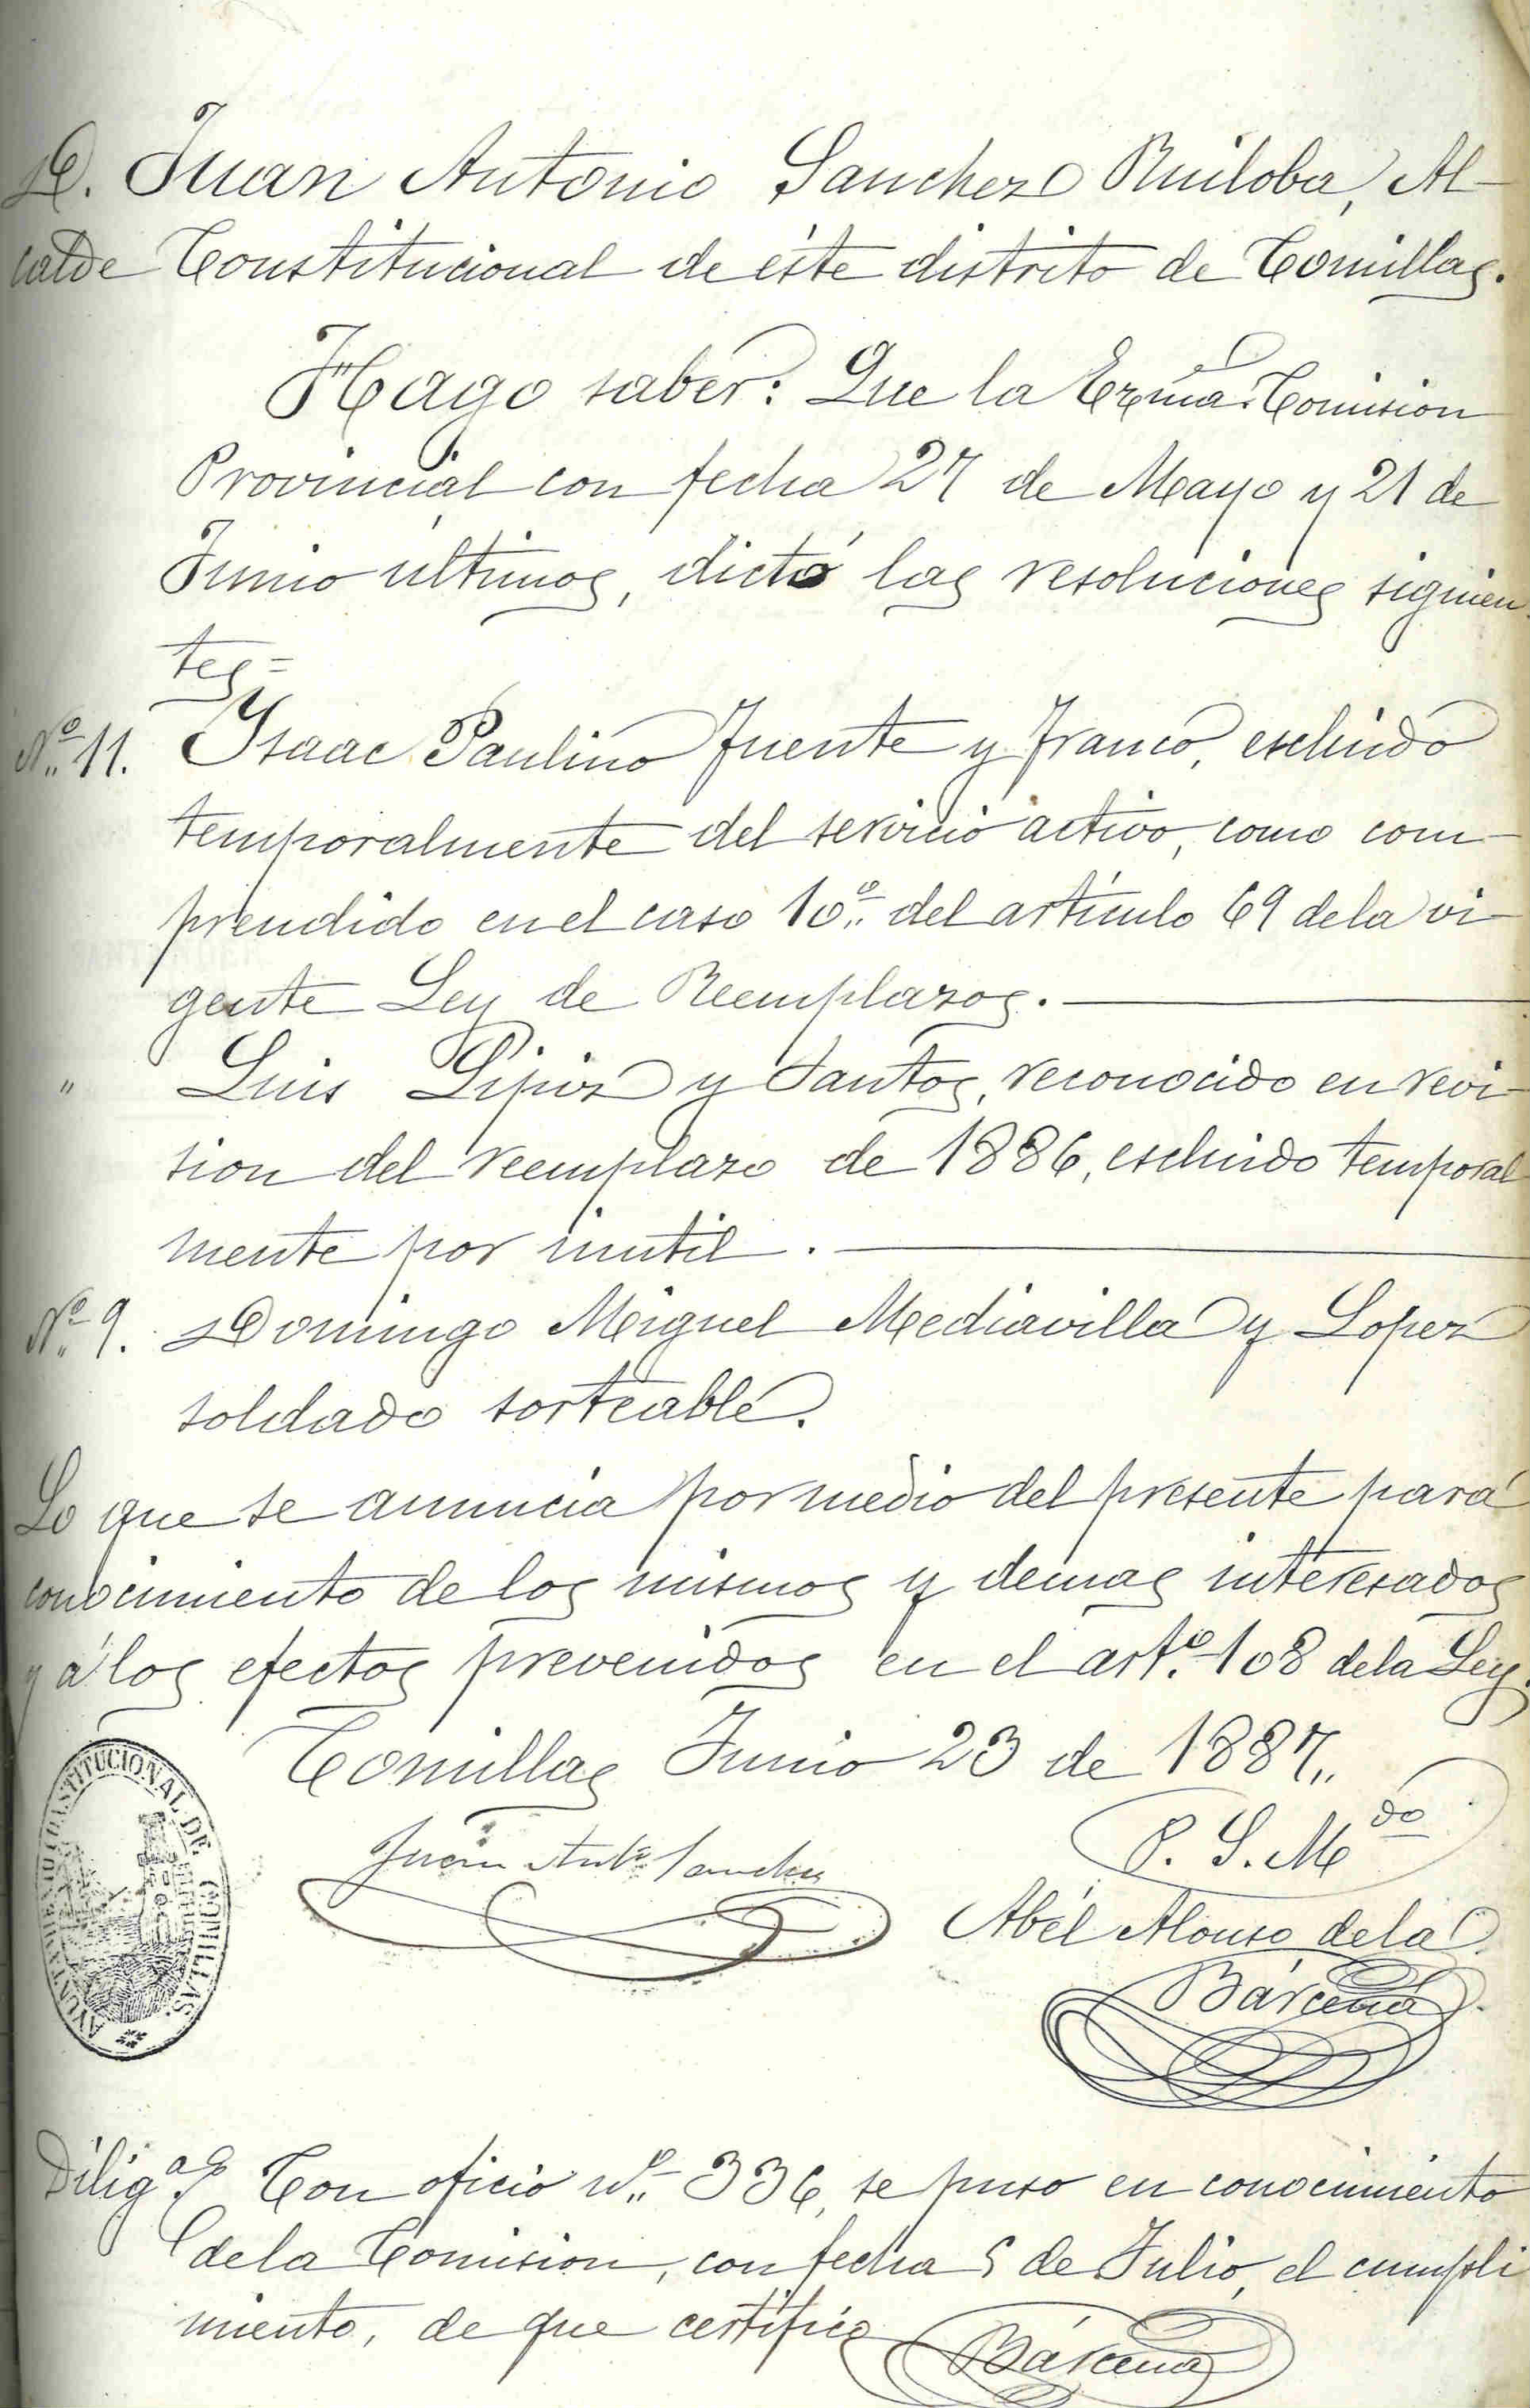 D. Juan Antonio Sanchez Ruiloba, Al-
calde Constitucional de éste distrito de Comillas.
Hago saber: Que la Exma. Comision
Provincial con fecha 27 de Mayo y 21 de
Junio últimos, dictó las resoluciones siguien-
tes=
Nº 11. Isaac Paulino Fuente y Franco, escluido
temporalmente del servicio activo, como com-
prendido en el caso 10º del artículo 69 de la vi-
gente Ley de Reemplazos.
" Luis y Santos, reconocido en revi-
sion del reemplazo de 1886, escluido temporal
mente por inutil.
Nº 9. Domingo Miguel Mediavilla y Lopez
soldado sorteable.
Lo que se anuncia por medio del presente para
conocimiento de los mismos y demas interesados
y á los efectos prevenidos en el artº 108 de la Ley.
Comillas Junio 23 de 1887.
AYUNTAMIENTO CONSTITUCIONAL DE COMILLAS
Juan Antº Sanchez
P. S. Mdo
Abél Alonso de la
Bárcena
Diligª Con oficio nº 336, se puso en conocimiento
de la Comision, con fecha 5 de Julio, el cumpli
miento, de que certifico
Bárcena